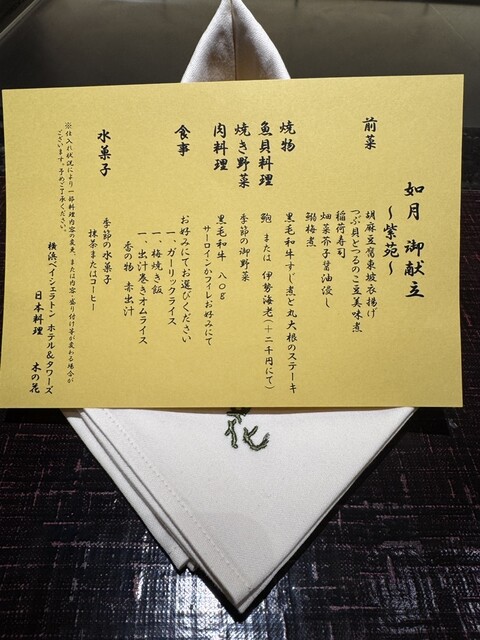 如月 御献立
〜紫苑〜
前菜
胡麻豆腐東坡衣揚げ
つぶ貝とつるのこ豆美味煮
稲荷寿司
畑菜芥子醤油浸し
鰯梅煮
焼物
黒毛和牛すし煮と丸大根のステーキ
魚貝料理
鮑 または 伊勢海老(+二千円にて)
焼き野菜
季節の御野菜
肉料理
黒毛和牛 八〇g
サーロインかフィレお好みにて
食事
お好みにてお選びください
一、ガーリックライス
一、梅焼き飯
一、出汁巻きオムライス
香の物 赤出汁
水菓子
季節の水菓子
抹茶またはコーヒー
※仕入れ状況により一部料理内容の変更、または内容・盛り付け等が変わる場合が
ございます。予めご了承ください。
横浜ベイシェラトン ホテル&タワーズ
日本料理 木の花
花